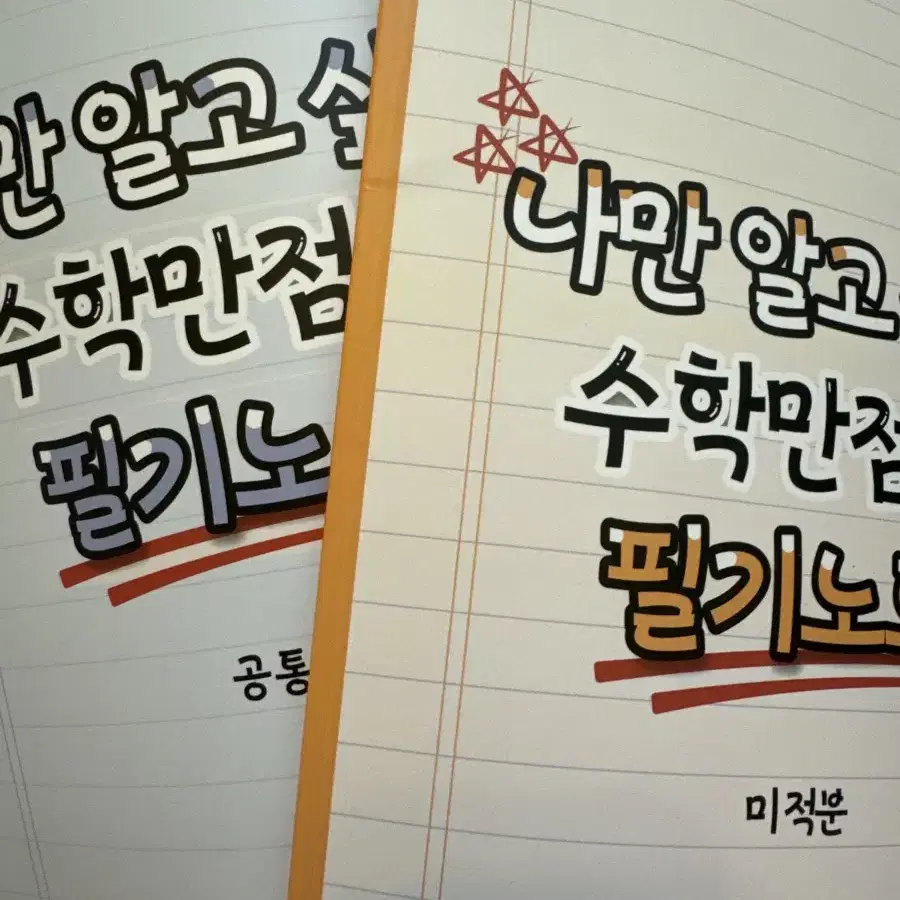 만 알고
수학만점
필기노
공통
나만 알고
수학만점
필기노
미적분